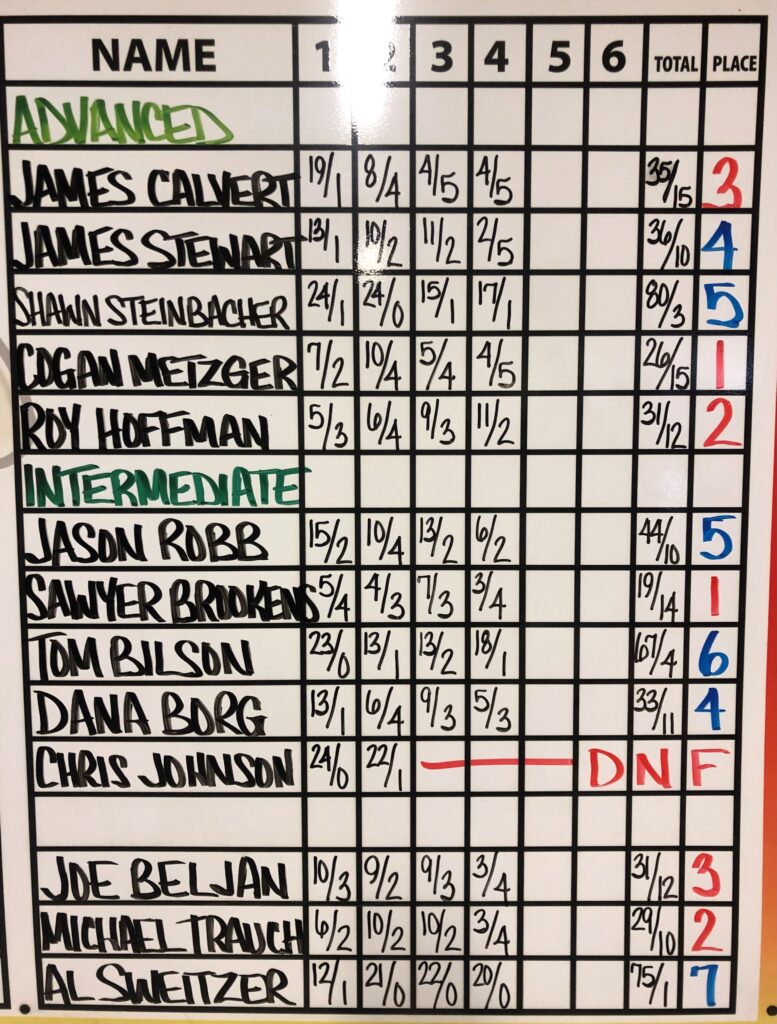 NAME 1 2 3 4 5 6 TOTAL PLACE
ADVANCED
JAMES CALVERT 19/1 8/4 4/5 4/5 35/15 3
JAMES STEWART 13/1 10/2 11/2 2/5 36/10 4
SHAWN STEINBACHER 24/1 24/0 15/1 17/1 80/3 5
COGAN METZGER 7/2 10/4 5/4 4/5 26/15 1
ROY HOFFMAN 5/3 6/4 9/3 11/2 31/12 2
INTERMEDIATE
JASON ROBB 15/2 10/4 13/2 6/2 44/10 5
SAWYER BROOKENS 5/4 4/3 7/3 3/4 19/14 1
TOM BILSON 23/0 13/1 13/2 18/1 67/4 6
DANA BORG 13/1 6/4 9/3 5/3 33/11 4
CHRIS JOHNSON 24/0 22/1 DNF
JOE BELJAN 10/3 9/2 9/3 3/4 31/12 3
MICHAEL TRAUCH 6/2 10/2 10/2 3/4 29/10 2
AL SWEITZER 12/1 21/0 22/0 20/0 75/1 7